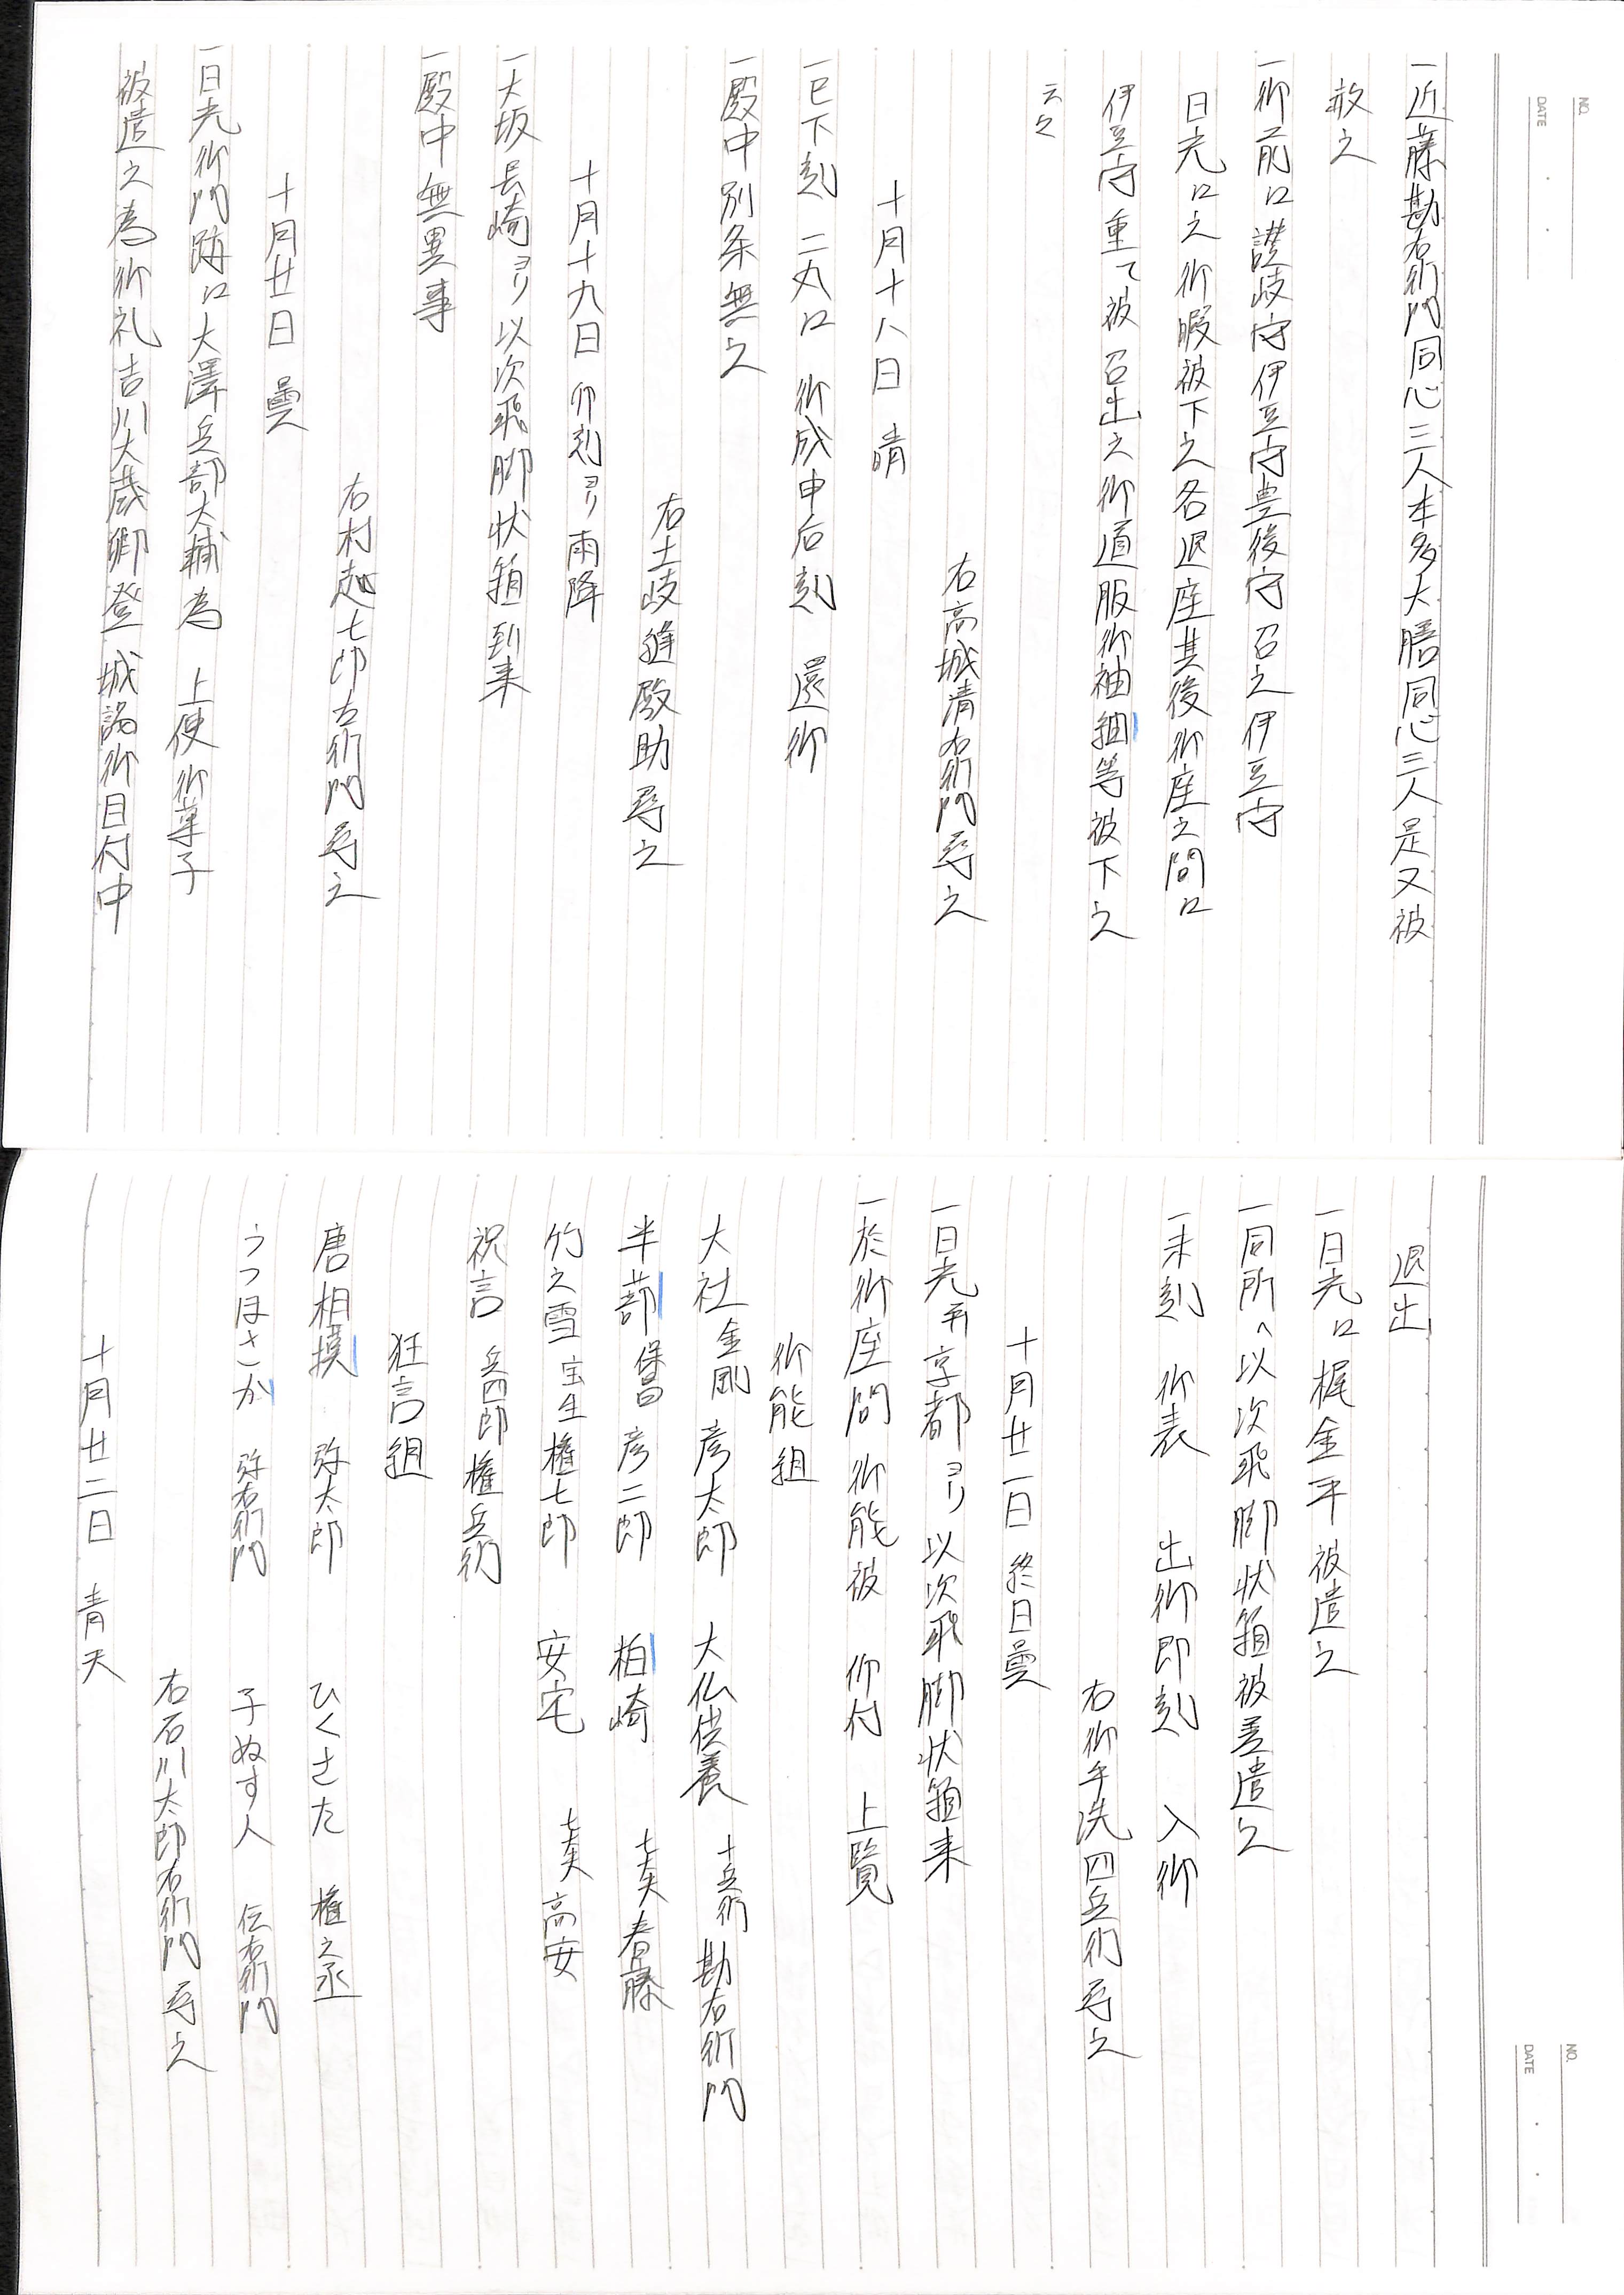 一近藤勘右衛門同心三人本多大膳同心三人是又被
救之
一御前江讃岐守伊豆守豊後守 召之伊豆守
日光江之御暇被下之各退座其後御座之間江
伊豆守重て被 召出之御道服御袖細等被下之
云々
右高城清右衛門尋之
十月十八日 晴
一巳下刻 二丸江 御成申后刻 還御
一殿中別条無之
右土岐縫殿助尋之
十月十九日 卯刻ヨリ雨降
一大坂長崎ヨリ以次飛脚状箱到来
一殿中無異事
右村越七郎右衛門尋之
十月廿日 曇
一日光御門跡江大澤兵部大輔為 上使御菓子
被遣之為御礼吉川大蔵卿登 城謁御目付中
退出
一日光江梶金平被遣之
一同所へ以次飛脚状箱被差遣之
一未刻 御表 出御即刻 入御
右御手洗四兵衛尋之
十月廿一日 終日曇
一日光并京都ヨリ以次飛脚状箱来
一於御座間御能被 仰付 上覧
御能組
大社 金剛 彦太郎 大仏供養 十兵衛 勘右衛門
半蔀 保昌 彦二郎 柏崎 七大夫 春藤
竹之雪 宝生 権七郎 安宅 七大夫 高安
祝言 長四郎 権兵衛
狂言組
唐相撲 弥太郎 ひくさた 権之丞
うつほさるか 弥右衛門 子ぬす人 伝右衛門
右石川太郎右衛門尋之
十月廿二日 青天